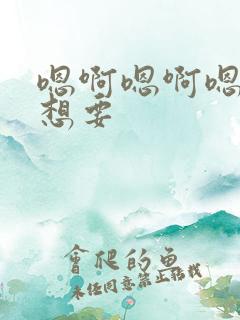 嗯啊嗯啊嗯
想要
會爬的魚
未经同意禁止转载